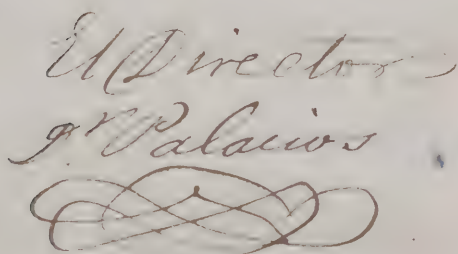 El Director
Palacios